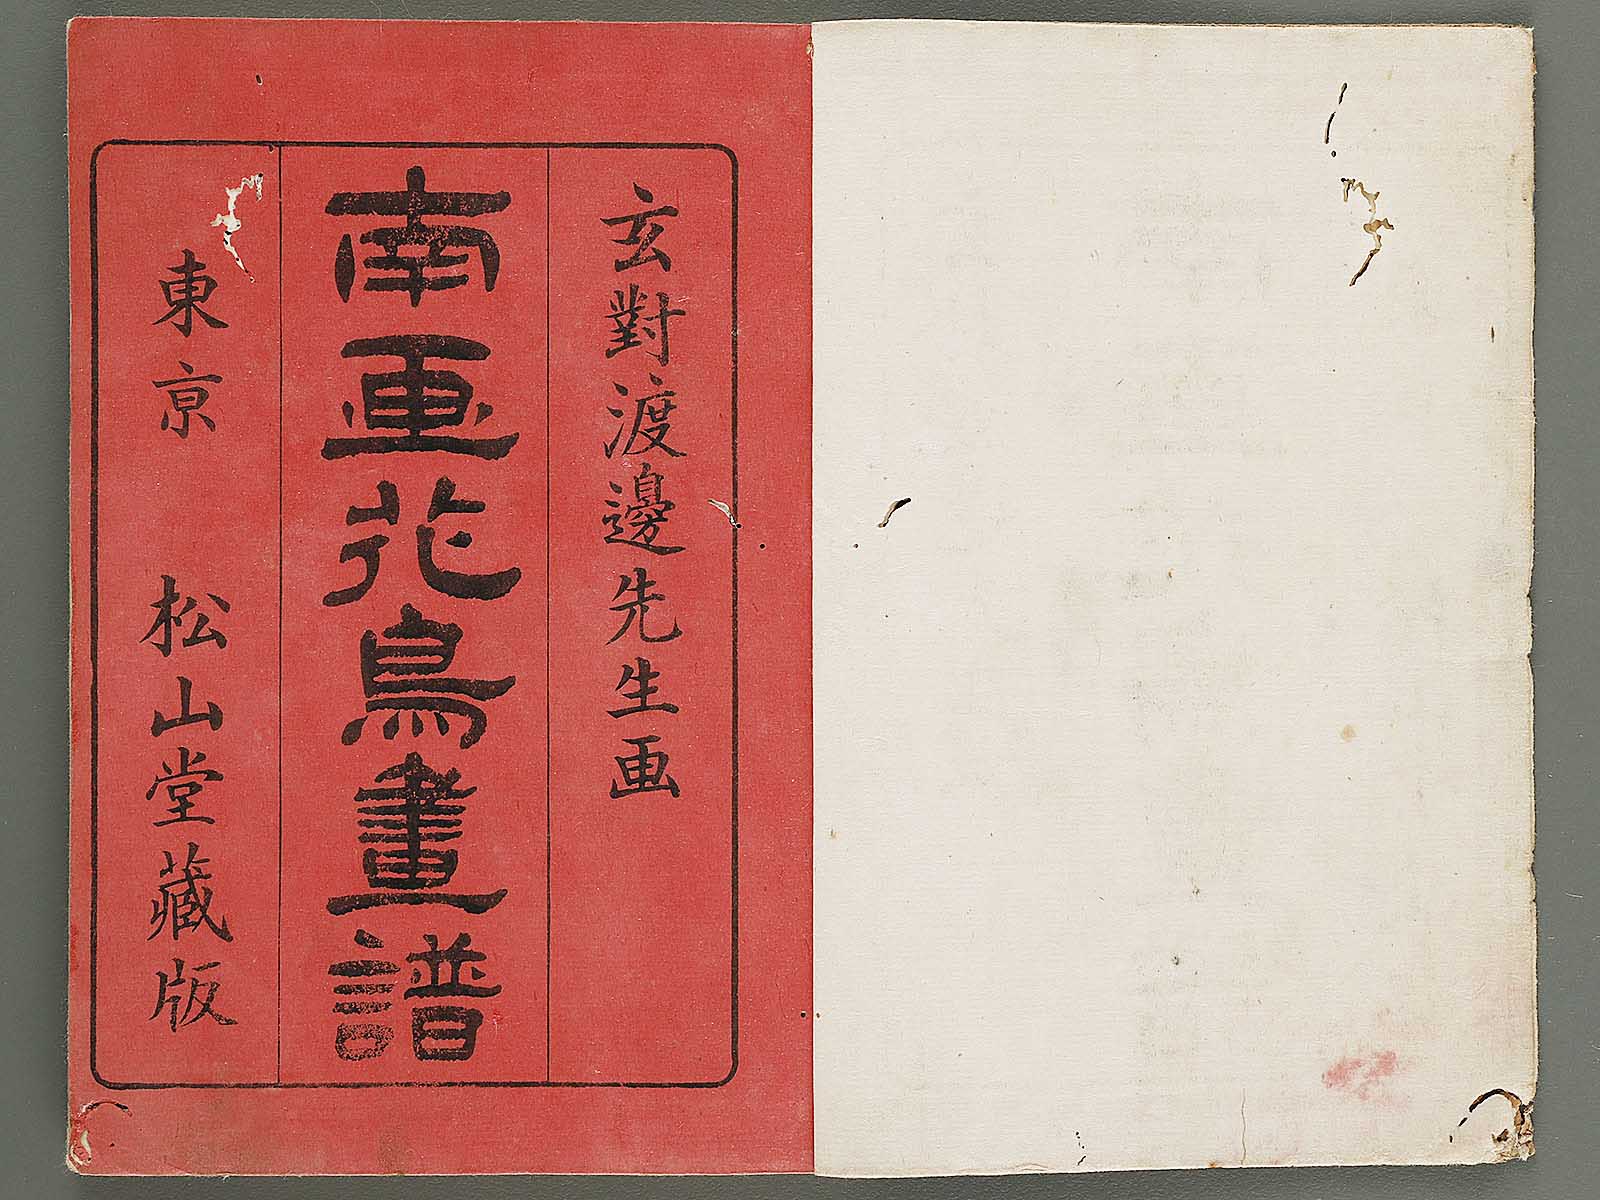 玄對渡邉先生画
南画花鳥畫譜
東京 松山堂藏版